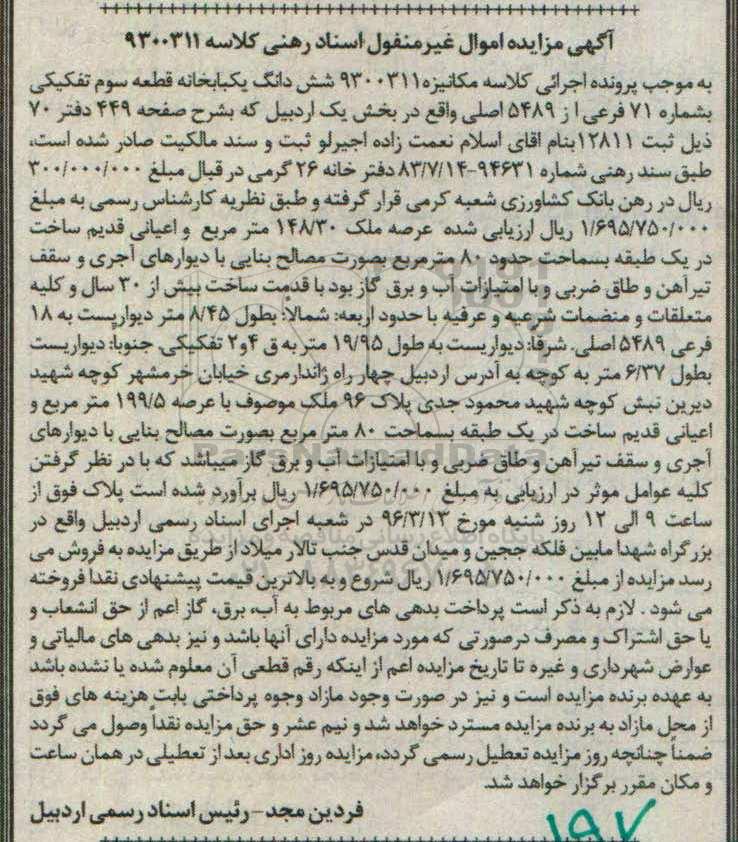 آگهی مزایده اموال غیرمنقول اسناد رهنی کلاسه ۹۳۰۰۳۱۱
به موجب پرونده اجرائی کلاسه مکانیزه۹۳۰۰۳۱۱ شش دانگ یکبابخانه قطعه سوم تفکیکی
بشماره ۷۱ فرعی ا ز ۵۴۸۹ اصلی واقع در بخش یک اردبیل که بشرح صفحه ۴۴۹ دفتر ۷۰
ذیل ثبت ۱۲۸۱۱بنام اقای اسلام نعمت زاده اجیرلو ثبت و سند مالکیت صادر شده است،
طبق سند رهنی شماره ۹۴۶۳۱-۸۳/۷/۱۴ دفتر خانه ۲۶ گرمی در قبال مبلغ ۳۰۰/۰۰۰/۰۰۰
ریال در رهن بانک کشاورزی شعبه کرمی قرار گرفته و طبق نظریه کارشناس رسمی به مبلغ
۱/۶۹۵/۷۵۰/۰۰۰ ریال ارزیابی شده عرصه ملک ۱۴۸/۳۰ متر مربع و اعیانی قدیم ساخت
در یک طبقه بسماحت حدود ۸۰ مترمربع بصورت مصالح بنایی با دیوارهای آجری و سقف
تیرآهن و طاق ضربی و با امتیازات آب و برق گاز بود با قدمت ساخت بیش از ۳۰ سال و کلیه
متعلقات و منضمات شرعیه و عرفیه با حدود اربعه: شمالاً: بطول ۸/۴۵ متر دیواریست به ۱۸
فرعی ۵۴۸۹ اصلی. شرقاً: دیواریست به طول ۱۹/۹۵ متر به ق ۴و۲ تفکیکی. جنوبا: دیواریست
بطول ۶/۳۷ متر به کوچه به آدرس اردبیل چهار راه ژاندارمری خیابان خرمشهر کوچه شهید
دیرین نبش کوچه شهید محمود جدی پلاک ۹۶ ملک موصوف با عرصه ۱۹۹/۵ متر مربع و
اعیانی قدیم ساخت در یک طبقه بسماحت ۸۰ متر مربع بصورت مصالح بنایی با دیوارهای
آجری و سقف تیرآهن و طاق ضربی و با امتیازات آب و برق گاز میباشد که با در نظر گرفتن
کلیه عوامل موثر در ارزیابی به مبلغ ۱/۶۹۵/۷۵۰/۰۰۰ ریال برآورد شده است پلاک فوق از
ساعت ۹ الی ۱۲ روز شنبه مورخ ۹۶/۳/۱۳ در شعبه اجرای اسناد رسمی اردبیل واقع در
بزرگراه شهدا مابین فلکه ججین و میدان قدس جنب تالار میلاد از طریق مزایده به فروش می
رسد مزایده از مبلغ ۱/۶۹۵/۷۵۰/۰۰۰ ریال شروع و به بالاترین قیمت پیشنهادی نقداً فروخته
می شود . لازم به ذکر است پرداخت بدهی های مربوط به آب، برق، گاز اعم از حق انشعاب و
یا حق اشتراک و مصرف درصورتی که مورد مزایده دارای آنها باشد و نیز بدهی های مالیاتی و
عوارض شهرداری و غیره تا تاریخ مزایده اعم از اینکه رقم قطعی آن معلوم شده یا نشده باشد
به عهده برنده مزایده است و نیز در صورت وجود مازاد وجوه پرداختی بابت هزینه های فوق
از محل مازاد به برنده مزایده مسترد خواهد شد و نیم عشر و حق مزایده نقداً وصول می گردد
ضمناً چنانچه روز مزایده تعطیل رسمی گردد، مزایده روز اداری بعد از تعطیلی در همان ساعت
و مکان مقرر برگزار خواهد شد.
فردین مجد-رئیس اسناد رسمی اردبیل
۱۹۷
ParsNamadData
پایگاه اطلاع رسانی مناقصه و مزایده